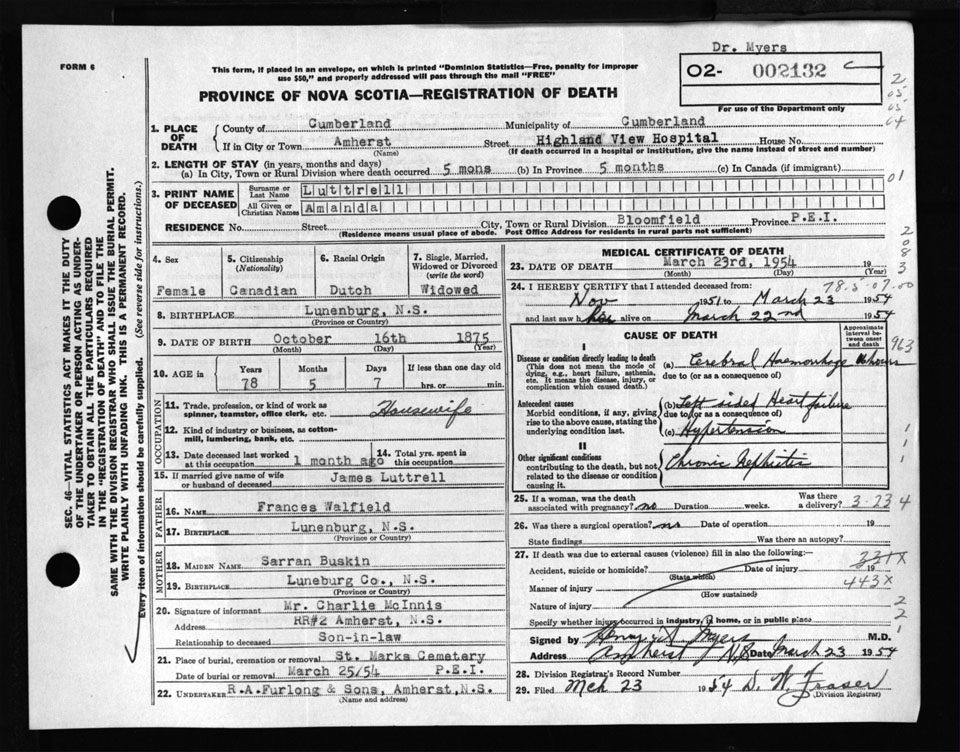 Dr. Myers
FORM 6
This form, if placed in an envelope, on which is printed "Dominion Statistics—Free, penalty for improper
use $50," and properly addressed will pass through the mail "FREE"
02- 002132
For use of the Department only
PROVINCE OF NOVA SCOTIA—REGISTRATION OF DEATH
2
05
05
64
1. PLACE OF DEATH
County of Cumberland Municipality of Cumberland
If in City or Town Amherst Street Highland View Hospital House No.
(Name) (If death occurred in a hospital or institution, give the name instead of street and number)
2. LENGTH OF STAY (in years, months and days)
(a) In City, Town or Rural Division where death occurred 5 mons (b) In Province 5 months (c) In Canada (if immigrant)
01
3. PRINT NAME OF DECEASED
Surname or Last Name Luttrell
All Given or Christian Names Amanda
RESIDENCE No. Street City, Town or Rural Division Bloomfield Province P.E.I.
(Residence means usual place of abode. Post Office Address for residents in rural parts not sufficient)
2
0
8
3
4. Sex
Female
5. Citizenship
(Nationality)
Canadian
6. Racial Origin
Dutch
7. Single, Married,
Widowed or Divorced
(write the word)
Widowed
8. BIRTHPLACE Lunenburg, N.S.
(Province or Country)
9. DATE OF BIRTH October 16th 1875
(Month) (Day) (Year)
10. AGE in
Years Months Days If less than one day
78 5 7 hrs. or min.
OCCUPATION
11. Trade, profession, or kind of work as
spinner, teamster, office clerk, etc. Housewife
12. Kind of industry or business, as cotton-
mill, lumbering, bank, etc.
13. Date deceased last worked
at this occupation 1 month ago
14. Total yrs. spent in
this occupation
15. If married give name of wife
or husband of deceased James Luttrell
FATHER
16. NAME Frances Walfield
17. BIRTHPLACE Lunenburg, N.S.
(Province or Country)
MOTHER
18. MAIDEN NAME Sarran Buskin
19. BIRTHPLACE Luneburg Co., N.S.
(Province or Country)
20. Signature of informant Mr. Charlie McInnis
Address RR#2 Amherst, N.S.
Relationship to deceased Son-in-law
21. Place of burial, cremation or removal St. Marks Cemetery
Date of burial or removal March 25/54 P.E.I.
22. UNDERTAKER R.A.Furlong & Sons, Amherst,N.S.
(Name and address)
MEDICAL CERTIFICATE OF DEATH
23. DATE OF DEATH March 23rd, 1954 19
(Month) (Day) (Year)
78.5.07.00
24. I HEREBY CERTIFY that I attended deceased from:
Nov 1951 to March 23 1954
and last saw her alive on March 22nd 1954
CAUSE OF DEATH
Approximate
interval between
onset
and death
963
I
Disease or condition directly leading to death
(This does not mean the mode of
dying, e.g., heart failure, asthenia,
etc. It means the disease, injury, or
complication which caused death.)
(a) Cerebral Haemorrhage hours
due to (or as a consequence of)
Antecedent causes
Morbid conditions, if any, giving
rise to the above cause, stating the
underlying condition last.
(b) Left sided Heart failure
due to (or as a consequence of)
(c) Hypertension
1
1
1
II
Other significant conditions
contributing to the death, but not
related to the disease or condition
causing it.
Chronic Nephritis
25. If a woman, was the death
associated with pregnancy? no Duration weeks.
Was there
a delivery?
3-23 4
26. Was there a surgical operation? no Date of operation 19
State findings Was there an autopsy?
27. If death was due to external causes (violence) fill in also the following:—
331X
Accident, suicide or homicide? Date of injury 19
(State which)
443X
Manner of injury
(How sustained)
Nature of injury
2
2
1
Specify whether injury occurred in industry, in home, or in public place
Signed by Henry A Myers M.D.
Address Amherst N.S Date March 23 1954
28. Division Registrar's Record Number
29. Filed Mch 23 1954 D. W. Fraser
(Division Registrar)
SEC. 46—VITAL STATISTICS ACT MAKES IT THE DUTY
OF THE UNDERTAKER OR PERSON ACTING AS UNDER-
TAKER TO OBTAIN ALL THE PARTICULARS REQUIRED
IN THE "REGISTRATION OF DEATH" AND TO FILE THE
SAME WITH THE DIVISION REGISTRAR WHO SHALL ISSUE THE BURIAL PERMIT.
WRITE PLAINLY WITH UNFADING INK. THIS IS A PERMANENT RECORD.
Every item of information should be carefully supplied. (See reverse side for instructions.)